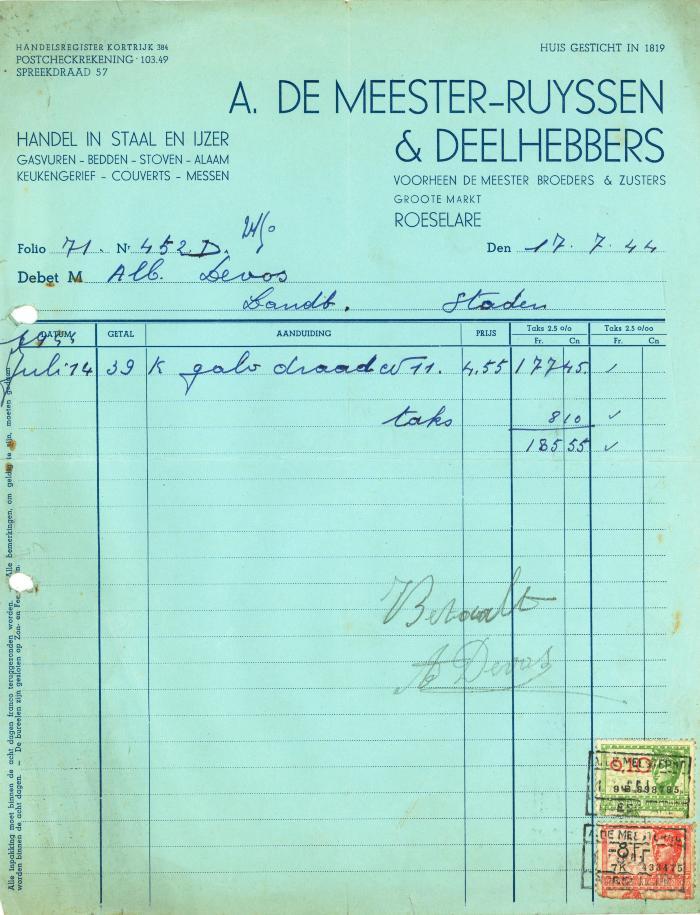 HANDELSREGISTER KORTRIJK 384
POSTCHECKREKENING · 103.49
SPREEKDRAAD 57
HUIS GESTICHT IN 1819
A. DE MEESTER-RUYSSEN
& DEELHEBBERS
HANDEL IN STAAL EN IJZER
GASVUREN - BEDDEN - STOVEN - ALAAM
KEUKENGERIEF - COUVERTS - MESSEN
VOORHEEN DE MEESTER BROEDERS & ZUSTERS
GROOTE MARKT
ROESELARE
Folio 71. Nr 452 D.
Den 17. 7. 44
Debet M Alb. Devos
Landb. Staden
DATUM GETAL AANDUIDING PRIJS Taks 2.5 o/o Taks 2.5 o/oo
Fr. Cn Fr. Cn
Juli 14 39 K galv draad N 11. 4.55 177 45.
taks 8 10
185 55
Betaalt
A Devos
Alle inpakking moet binnen de acht dagen franco teruggezonden worden. Alle bemerkingen, om geldig te zijn, moeten gedaan
worden binnen de acht dagen. — De bureelen zijn gesloten op Zon- en
0.10
8F
7K 433475